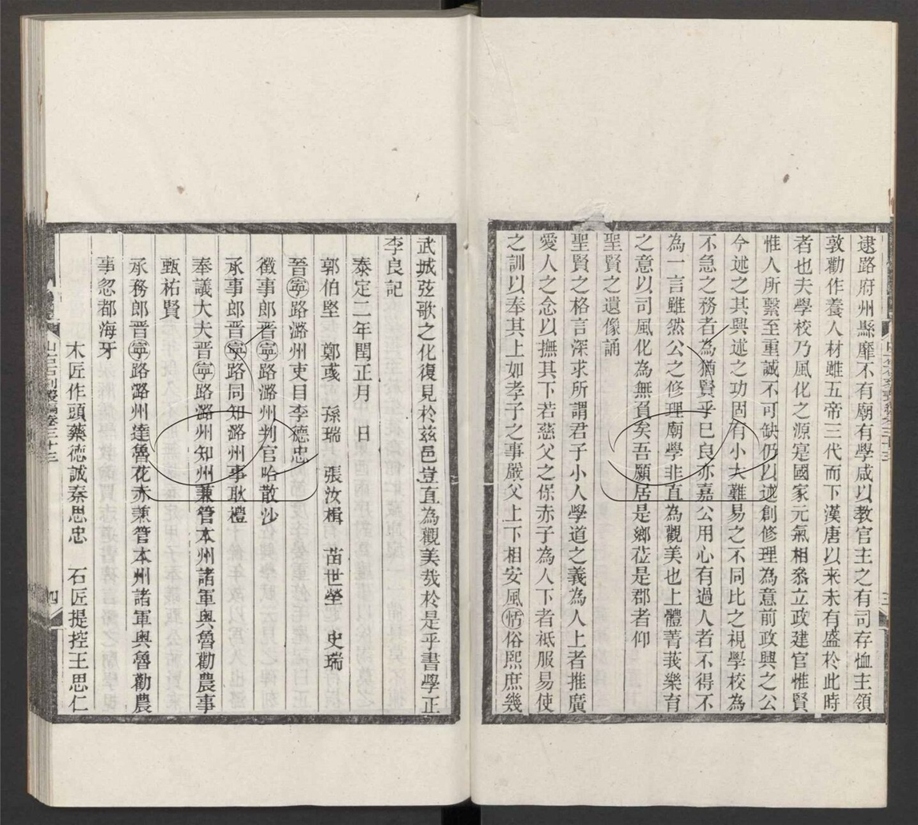 逮路府州縣靡不有廟有學咸以教官主之有司存恤主領
敦勸作養人材雖五帝三代而下漢唐以來未有盛於此時
者也夫學校乃風化之源寔國家元氣相叅立政建官惟賢
惟人所繫至重誠不可缺仍以述創修理為意前政興之公
今述之其興述之功固有小大難易之不同比之視學校為
不急之務者為猶賢乎已良亦嘉公用心有過人者不得不
為一言雖然公之修理廟學非直為觀美也上體菁莪樂育
之意以司風化為無負矣吾願居是鄉莅是郡者仰
聖賢之遺像誦
聖賢之格言深求所謂君子小人學道之義為人上者推廣
愛人之念以撫其下若慈父之保赤子為人下者祗服易使
之訓以奉其上如孝子之事嚴父上下相安風恬俗熙庶幾
三
武城弦歌之化復見於茲邑豈直為觀美哉於是乎書學正
李良記
泰定二年閏正月 日
郭伯堅 鄭彧 孫瑞 張汝楫 苗世榮 史瑞
晉寧路潞州吏目李德忠
徵事郎晉寧路潞州判官哈散沙
承事郎晉寧路同知潞州事耿禮
奉議大夫晉寧路潞州知州兼管本州諸軍奧魯勸農事
甄祐賢
承務郎晉寧路潞州達魯花赤兼管本州諸軍奧魯勸農
事忽都海牙
木匠作頭藥德誠秦思忠 石匠提控王思仁
四